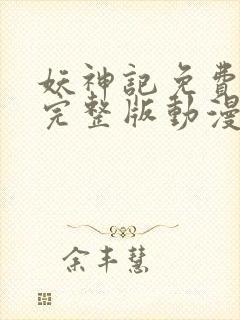 妖神記免費
完整版動漫
余丰慧